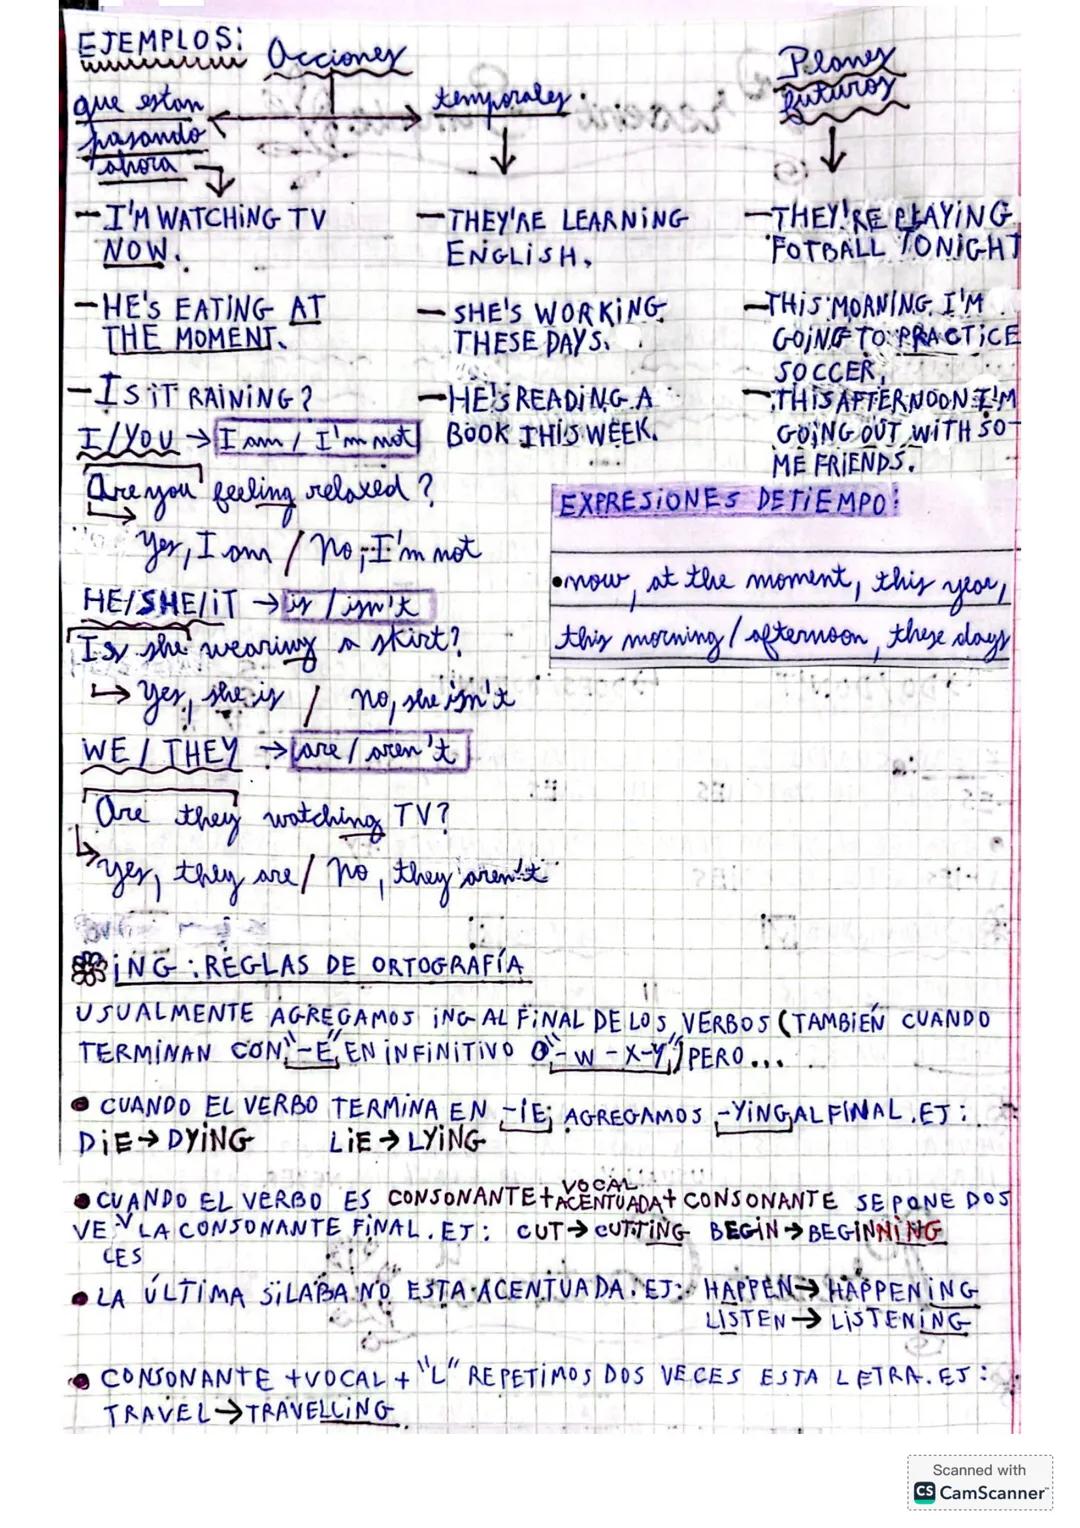 EJEMPLOS:
Acciones
que estan pasando ahora
temporales.
Planes futuros
- I'M WATCHING TV
NOW.
- HE'S EATING AT
THE MOMENT.
- IS IT RAINING?
- THEY'RE LEARNING
ENGLISH.
- SHE'S WORKING
THESE DAYS.
- HE'S READING A
BOOK THIS WEEK.
- THEY'RE PLAYING
FOTBALL TONIGHT
- THIS MORNING I'M
GOING TO PRACTICE
SOCCER.
- THIS AFTERNOON I'M
GOING OUT WITH SO-
ME FRIENDS.
I/YOU → I am / I'm not
Are you feeling relaxed?
Yes, I am / No, I'm not
HE/SHE/IT → is / isn't
Is she wearing a skirt?
↳ Yes, she is / No, she isn't
WE / THEY → are / aren't
Are they watching TV?
↳ Yes, they are / No, they aren't
EXPRESIONES DE TIEMPO:
• now, at the moment, this year,
this morning / afternoon, these days
ING: REGLAS DE ORTOGRAFÍA
USUALMENTE AGREGAMOS ING AL FINAL DE LOS VERBOS (TAMBIÉN CUANDO
TERMINAN CON "-E" EN INFINITIVO O "-W-X-Y") PERO...
• CUANDO EL VERBO TERMINA EN -IE; AGREGAMOS -YING AL FINAL. EJ:
DIE → DYING LIE → LYING
• CUANDO EL VERBO ES CONSONANTE + VOCAL ACENTUADA + CONSONANTE SE PONE DOS
VECES LA CONSONANTE FINAL. EJ: CUT → CUTTING BEGIN → BEGINNING
• LA ÚLTIMA SILABA NO ESTA ACENTUADA. EJ: HAPPEN → HAPPENING
LISTEN → LISTENING
• CONSONANTE + VOCAL + "L" REPETIMOS DOS VECES ESTA LETRA. EJ:
TRAVEL → TRAVELLING
Scanned with
CS CamScanner